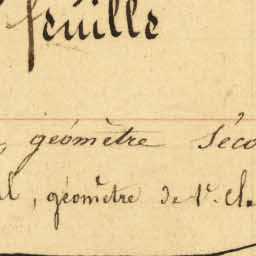 feuille
, géomètre Séco
l, géomètre de 1e. cla